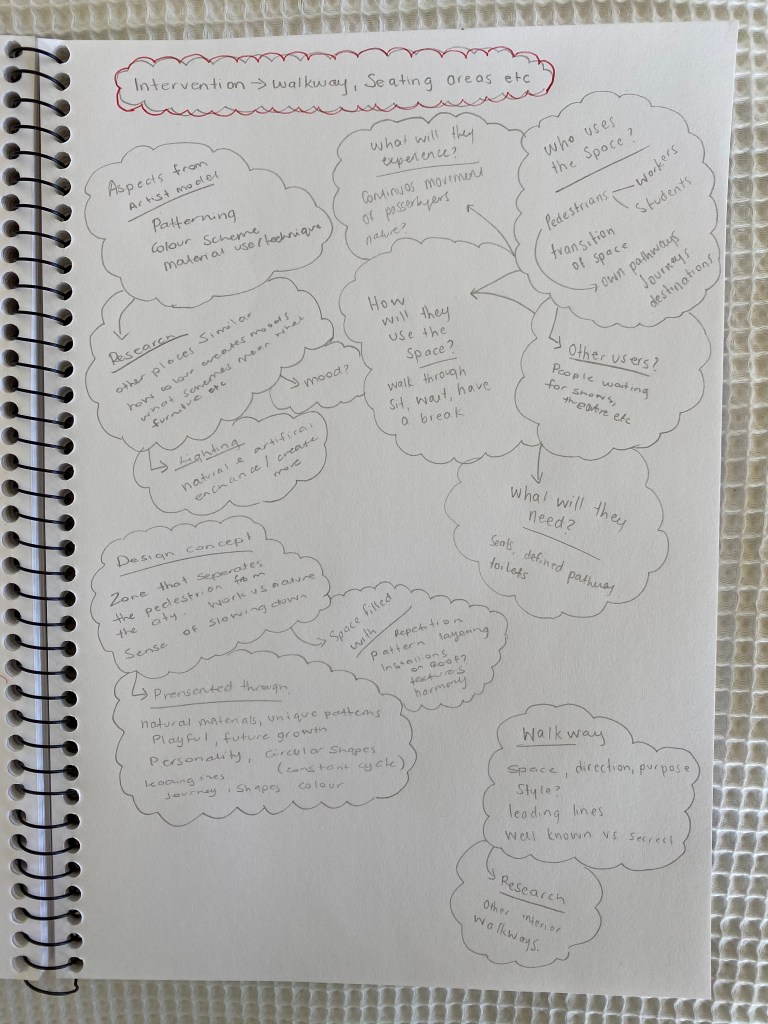 Intervention → walkway, Seating areas etc
Aspects from
Artist model
Patterning
Colour Scheme
material use/technique
Research
other places similar
how colour creates moods
what schemes mean what
furniture etc
mood?
Lighting
natural & artificial
enchance / create
more
What will they
experience?
Continuos movement
of passerbyers
nature?
Who uses
the space?
Pedestrians
workers
Students
transition
of space
own pathways
Journeys
destinations
How
will they
use the
Space?
walk through
Sit, wait, have
a break
Other users?
People waiting
for shows,
theatre etc
What will they
need?
Seats, defined pathway
toilets
Design concept
Zone that seperates
the pedestrion from
the city. Work vs nature
Sense of slowing down
Space filled
with
Repetition
Pattern layering
Installions
on Roof?
textures
harmony
Prensented through
natural materials, unique patterns
Playful, future growth
Personality, Circular Shapes
leading lines (constant cycle)
Journey, Shapes colour
Walkway
Space, direction, purpose
Style?
leading lines
Well known vs secret
Research
Other interior
walkways.